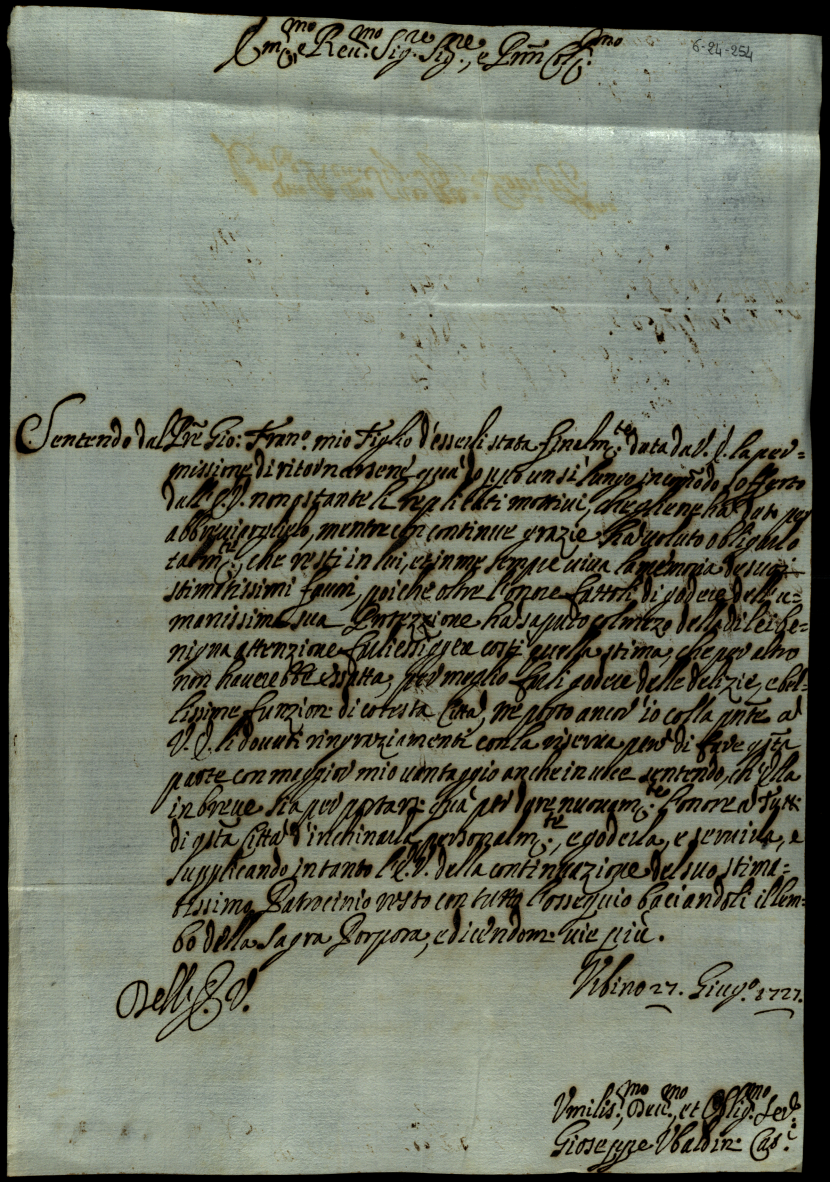 Em.mo e Reu.mo Sig.re Sig.re, e Prñn Col.mo
6-24-254
Sentendo dal Prẽ Gio: Fran.o mio Figlio d'esserli stata finalm.te data da V. E. la per=
missione di ritornarsene quà dopo un sì lungo incom̃odo sofferto
dall' E. V. non ostante li replicati mottivi, che gliene ha dato per
abbreviarglielo, mentre con continue grazie ha voluto obligarlo
talm.te, che resti in lui, et in me sempre viva la memoria de suoi
stimatissimi favori, poiche oltre l'onore fattoli di godere dell'u=
manissima sua Protezzione ha saputo col mezo della di lei be=
nigna attenzione farli essigere costì quella stima, che per altro
non haverebbe esatta, per meglio farli godere delle delizie, e bel=
lissime funzioni di cotesta Città, ne porto ancor io colla pñte a
V. E. li dovuti ringraziamenti con la riserva però di fare q̃sta
parte con maggior mio vantaggio anche in voce sentendo, ch'ella
in breve sia per portarsi quà per dare nuovam.te l'onore a Tutti
di q̃sta Città d'inchinarla personalm.te, e goderla, e servirla, e
supplicando intanto l'E. V. della continuazione del suo stima=
tissimo Patrocinio resto con tutto l'ossequio baciandoli il lem=
bo della Sagra Porpora, e dicendomi vie più.
Dell' E. V.
Vrbino 27. Giug.o 1727.
Vmilis.mo Deu.mo, et Oblig.mo Ser.e
Gioseppe Vbaldini